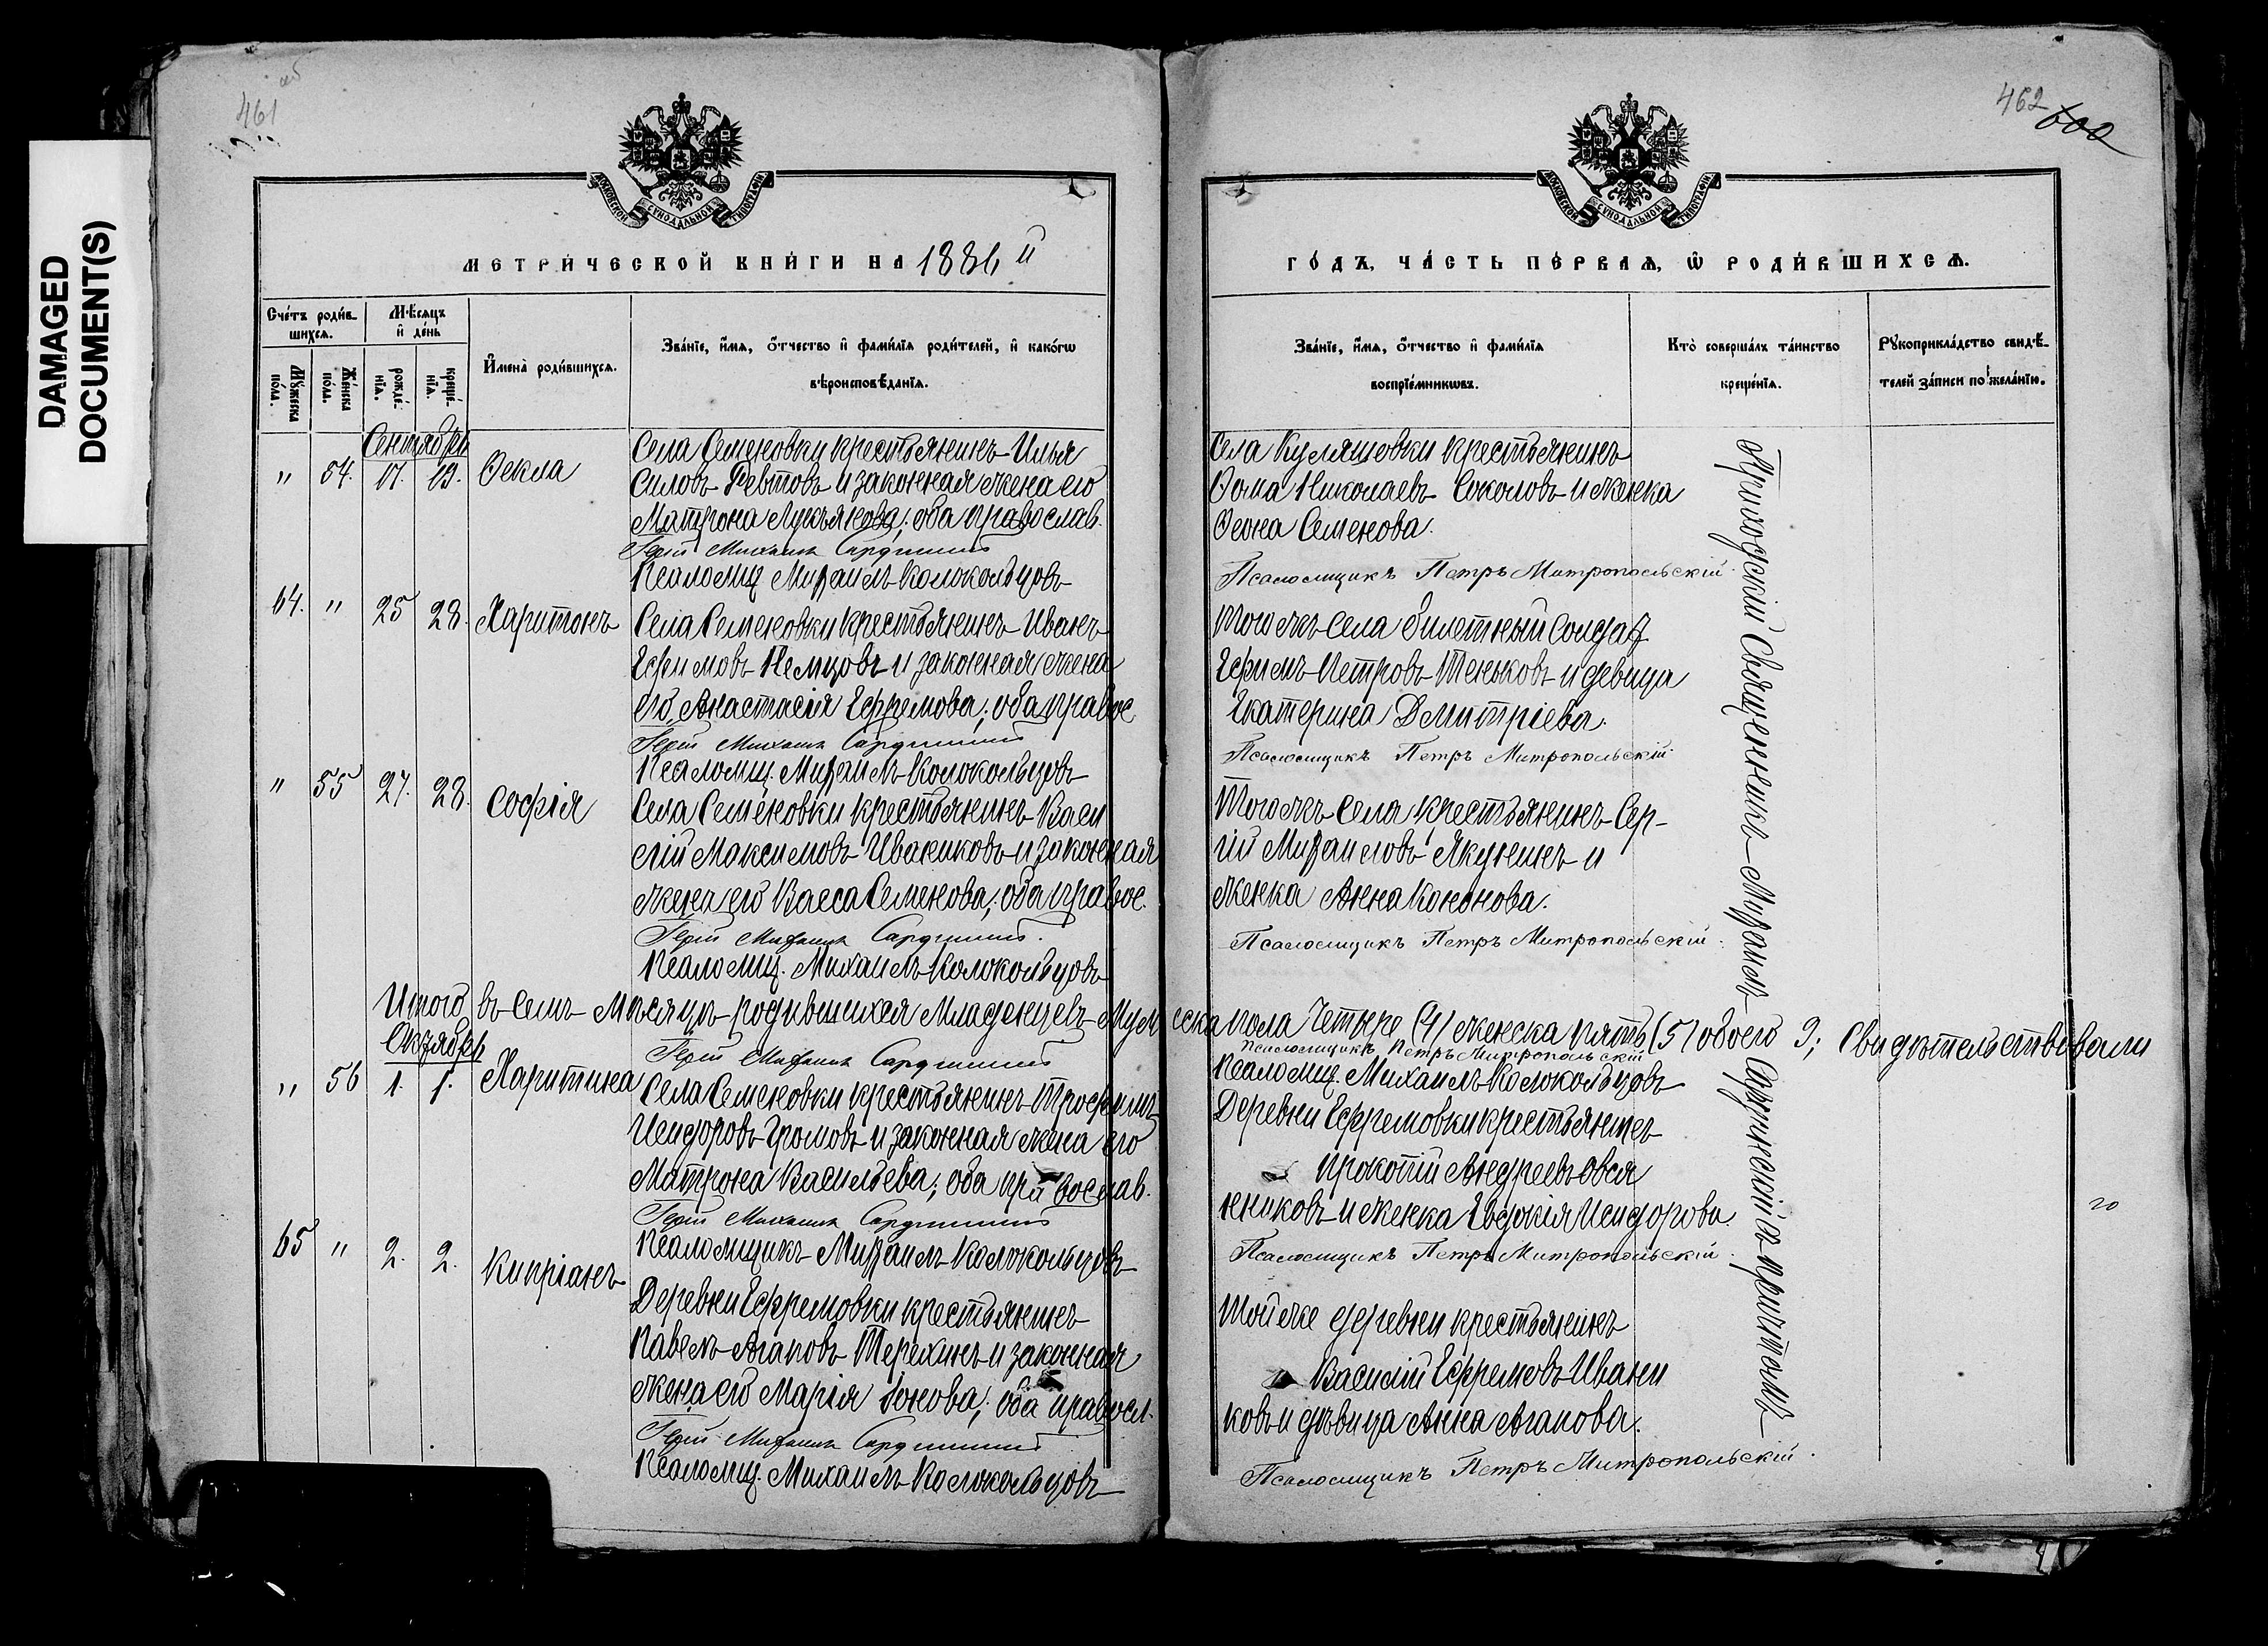 DAMAGED
DOCUMENT(S)
461
об
МОСКОВСКОЙ СѴНОДАЛЬНОЙ ТИПОГРАФІИ
МЕТРИ́ЧЕСКОЙ КНИ́ГИ НА 1886 й
Сче́тъ роди́в-
шихсѧ.
Мѣ́сѧцъ
и҆ де́нь
Мꙋ́жеска
по́ла.
Же́нска
по́ла.
рожде́-
нїѧ.
креще́-
нїѧ.
И҆мена̀ роди́вшихсѧ.
Зва́нїе, и҆́мѧ, ѻ҆́тчество и҆ фами́лїѧ роди́телей, и҆ како́гѡ
вѣроисповѣ́данїѧ.
Сентябрь
" 54. 17. 19. Ѳекла
Села Семеновки крестьянинъ Илья
Силовъ Ревтовъ и законная жена его
Матрона Лукьянова; оба православ.
Іерей Михаилъ Сардинскій
Псаломщ Михаилъ Колокольцовъ
64. " 25 28. Харитонъ
Села Семеновки крестьянинъ Иванъ
Ефимовъ Немцовъ и законная жена
его Анастасія Ефремова; оба правос
Іерей Михаилъ Сардинскій
Псаломщ. Михаилъ Колокольцовъ
" 55 27. 28. Софія
Села Семеновки крестьянинъ Васи
лій Максимовъ Иваниковъ и законная
жена его Васса Семенова; оба правос.
Іерей Михаилъ Сардинскій.
Псаломщ. Михаилъ Колокольцовъ
Итого въ семъ мѣсяцѣ родившихся младенцевъ муж
Октябрь
Іерей Михаилъ Сардинскій
" 56 1. 1. Харитина
Села Семеновки крестьянинъ Трофимъ
Исидоровъ Громовъ и законная жена его
Матрона Васильева; оба православ.
Іерей Михаилъ Сардинскій
Псаломщикъ Михаилъ Колокольцовъ
65 " 2. 2. Кипріанъ
Деревни Ефремовки крестьянинъ
Павелъ Агаповъ Терехинъ и законная
жена его Марія Іонова; оба правосл.
Іерей Михаилъ Сардинскій
Псаломщ. Михаилъ Колокольцовъ
462 600
МОСКОВСКОЙ СѴНОДАЛЬНОЙ ТИПОГРАФІИ
ГО́ДЪ, ЧА́СТЬ ПЕ́РВАѦ, Ѡ҆ РОДИ́ВШИХСѦ.
Зва́нїе, и҆́мѧ, ѻ҆́тчество и҆ фами́лїѧ
воспрїе́мникѡвъ.
Кто̀ соверша́лъ та́инство
креще́нїѧ.
Рꙋкоприкла́дство свидѣ́-
телей за́писи по жела́нїю.
Села Куляшовки крестьянинъ
Ѳома Николаевъ Соколовъ и женка
Ѳеона Семенова.
Псаломщикъ Петръ Митропольскій
Того жъ села билетный солдат
Ефимъ Петровъ Теньковъ и девица
Екатерина Дмитріева.
Псаломщикъ Петръ Митропольскій
Того жъ села крестьянинъ Сер-
гій Михаиловъ Якунинъ и
женка Анна Кононова.
Псаломщикъ Петръ Митропольскій.
ска пола Четыре (4) женска пять (5) обоего 9; Свидѣтельствовали
Псаломщикъ Петръ Митропольскій
Псаломщ. Михаилъ Колокольцовъ
Деревни Ефремовки крестьянинъ
Прокопій Андреевъ Овся
нниковъ и женка Евдокія Исидорова.
Псаломщикъ Петръ Митропольскій.
Той же деревни крестьянинъ
Василій Ефремовъ Ивани
ковъ и дѣвица Анна Агапова.
Псаломщикъ Петръ Митропольскій.
Приходскій Священникъ Михаилъ Сардинскій съ причтомъ